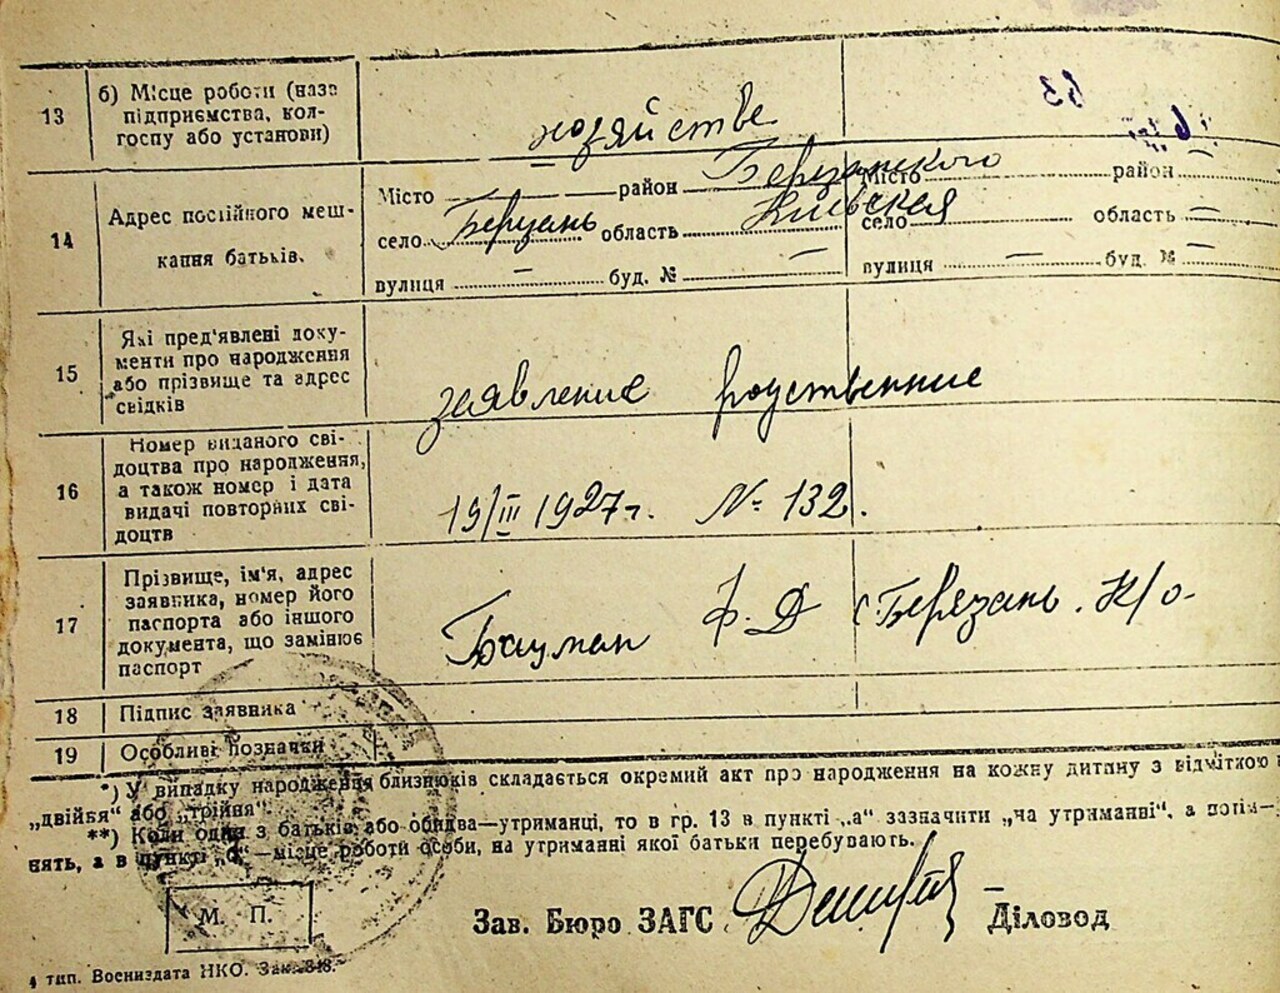 13 б) Місце роботи (назва
підприємства, кол-
госпу або установи)
хозяйстве
14 Адрес постійного меш-
кання батьків.
Місто — район Березанского
село Березань область Киевская
вулиця — буд. № —
Місто — район —
село — область —
вулиця — буд. № —
15 Які пред'явлені доку-
менти про народження
або прізвище та адрес
свідків
заявление родственние
16 Номер виданого сві-
доцтва про народження,
а також номер і дата
видачі повторних сві-
доцтв
19/III 1927 г. № 132.
17 Прізвище, ім'я, адрес
заявника, номер його
паспорта або іншого
документа, що замінює
паспорт
Ф. Д с. Березань. К/о-
18 Підпис заявника
19 Особливі позначки
*) У випадку народження близнюків складається окремий акт про народження на кожну дитину з відміткою
„двійня“ або „трійня“.
**) Коли один з батьків або обидва—утриманці, то в гр. 13 в пункті „а“ зазначити „на утриманні“, а
нять, а в пункті „б“—місце роботи особи, на утриманні якої батьки перебувають.
М. П.
Зав. Бюро ЗАГС Діловод
4 тип. Воениздата НКО. Зак. 348.